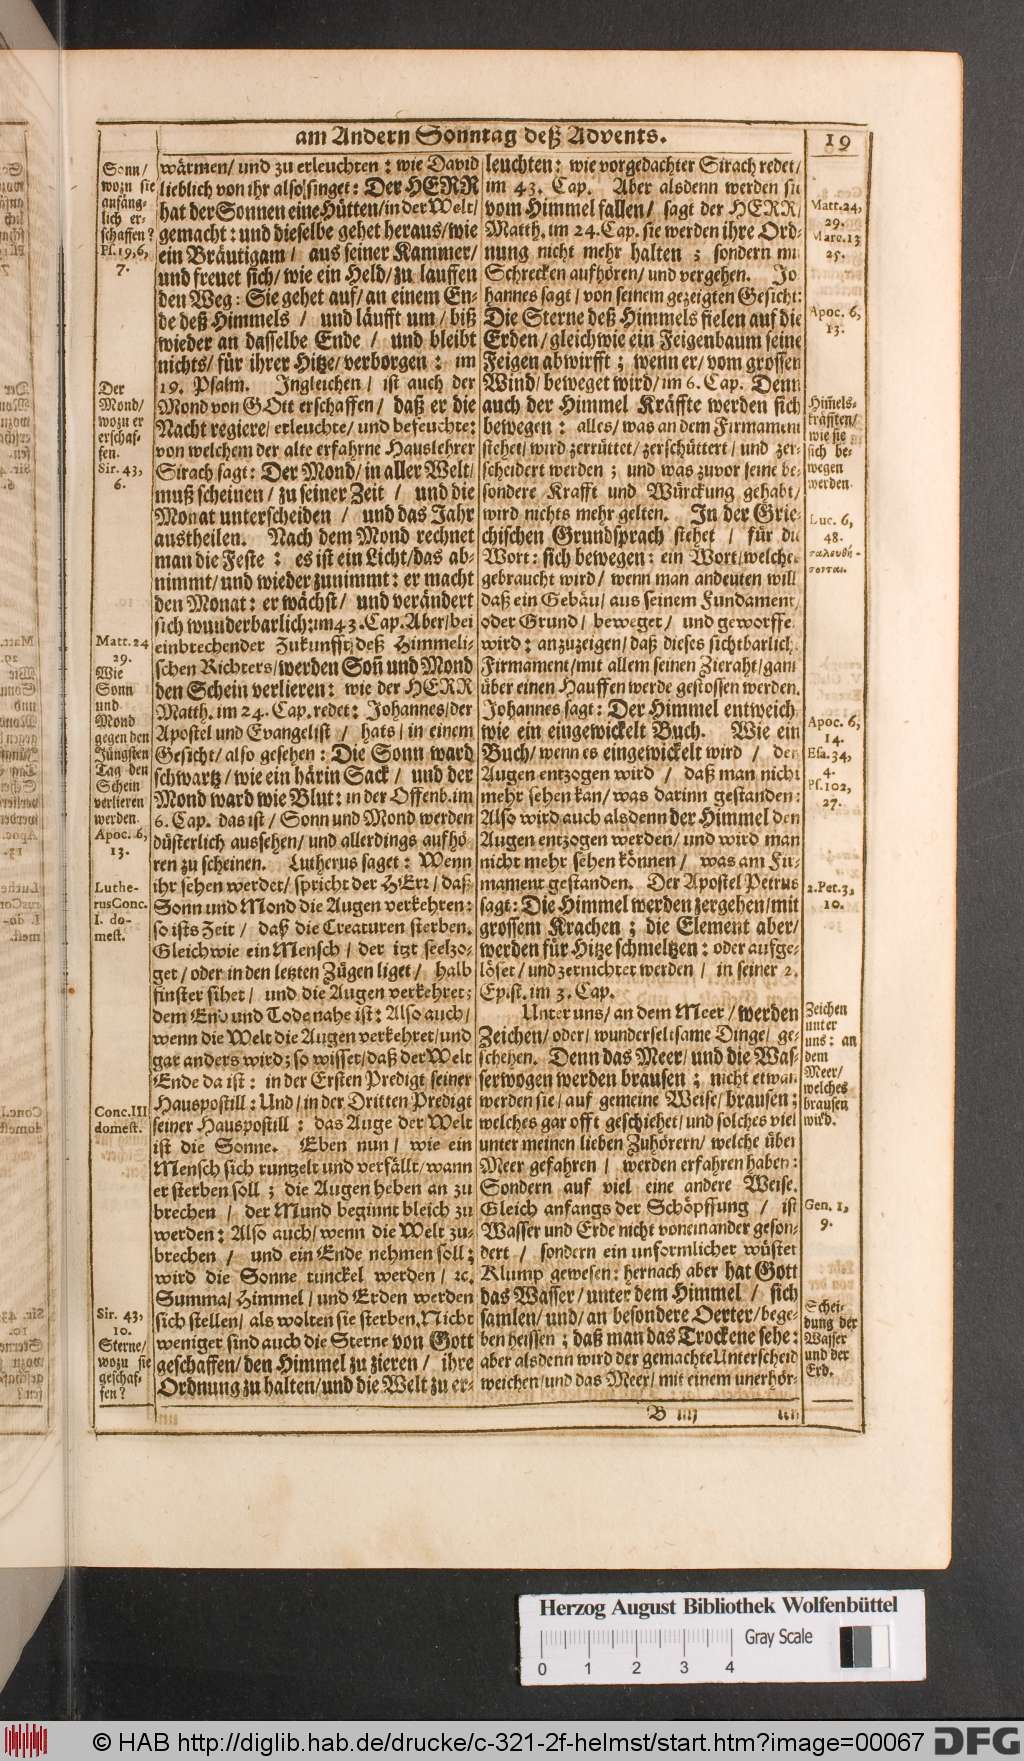 am Andern Sonntag deß Advents.
19
Sonn/
wozu sie
anfäng-
lich er-
schaffen?
Ps. 19, 6,
7.
Der
Mond/
wozu er
erschaf-
fen.
Sir. 43,
6.
Matt. 24
29.
Wie
Sonn
und
Mond
gegen den
Jüngsten
Tag den
Schein
verlieren
werden.
Apoc. 6,
13.
Luthe-
rus Conc.
I. do-
mest.
Conc. III
domest.
Sir. 43,
10.
Sterne/
wozu sie
geschaf-
fen?
wärmen/ und zu erleuchten: wie David
lieblich von ihr also singet: Der HERR
hat der Sonnen eine Hütten/ in der Welt/
gemacht: und dieselbe gehet heraus/ wie
ein Bräutigam/ aus seiner Kammer/
und freuet sich/ wie ein Held/ zu lauffen
den Weg: Sie gehet auf/ an einem En-
de deß Himmels/ und läufft um/ biß
wieder an dasselbe Ende/ und bleibt
nichts/ für ihrer Hitze/ verborgen: im
19. Psalm. Ingleichen/ ist auch der
Mond von GOtt erschaffen/ daß er die
Nacht regiere/ erleuchte/ und befeuchte:
von welchem der alte erfahrne Hauslehrer
Sirach sagt: Der Mond/ in aller Welt/
muß scheinen/ zu seiner Zeit/ und die
Monat unterscheiden/ und das Jahr
austheilen. Nach dem Mond rechnet
man die Feste: es ist ein Licht/ das ab-
nimmt/ und wieder zunimmt: er macht
den Monat: er wächst/ und verändert
sich wunderbarlich: im 43. Cap. Aber/ bei
einbrechender Zukunfft deß Himmeli-
schen Richters/ werden Soñ und Mond
den Schein verlieren: wie der HERR
Matth. im 24. Cap. redet: Johannes/ der
Apostel und Evangelist/ hats/ in einem
Gesicht/ also gesehen: Die Sonn ward
schwartz/ wie ein härin Sack/ und der
Mond ward wie Blut: in der Offenb. im
6. Cap. das ist/ Sonn und Mond werden
düsterlich aussehen/ und allerdings aufhö-
ren zu scheinen. Lutherus saget: Wenn
ihr sehen werdet/ spricht der HErr/ daß
Sonn und Mond die Augen verkehren:
so ists Zeit/ daß die Creaturen sterben.
Gleichwie ein Mensch/ der itzt seelzo-
get/ oder in den letzten Zügen liget/ halb
finster sihet/ und die Augen verkehret;
dem End und Tode nahe ist: Also auch/
wenn die Welt die Augen verkehret/ und
gar anders wird; so wisset/ daß der Welt
Ende da ist: in der Ersten Predigt seiner
Hauspostill: Und/ in der Dritten Predigt
seiner Hauspostill: das Auge der Welt
ist die Sonne. Eben nun/ wie ein
Mensch sich runtzelt und verfällt/ wann
er sterben soll; die Augen heben an zu
brechen/ der Mund beginnt bleich zu
werden: Also auch/ wenn die Welt zu-
brechen/ und ein Ende nehmen soll;
wird die Sonne tunckel werden/ ꝛc.
Summa/ Himmel/ und Erden werden
sich stellen/ als wolten sie sterben. Nicht
weniger sind auch die Sterne von Gott
geschaffen/ den Himmel zu zieren/ ihre
Ordnung zu halten/ und die Welt zu er-
leuchten: wie vorgedachter Sirach redet/
im 43. Cap. Aber alsdenn werden sie
vom Himmel fallen/ sagt der HERR/
Matth. im 24. Cap. sie werden ihre Ord-
nung nicht mehr halten; sondern mit
Schrecken aufhören/ und vergehen. Jo-
hannes sagt/ von seinem gezeigten Gesicht:
Die Sterne deß Himmels fielen auf die
Erden/ gleichwie ein Feigenbaum seine
Feigen abwirfft; wenn er/ vom grossen
Wind/ beweget wird/ im 6. Cap. Denn
auch der Himmel Kräffte werden sich
bewegen: alles/ was an dem Firmament
stehet/ wird zerrüttet/ zerschüttert/ und zer-
scheidert werden; und was zuvor seine be-
sondere Krafft und Würckung gehabt/
wird nichts mehr gelten. In der Grie-
chischen Grundsprach stehet/ für die
Wort: sich bewegen: ein Wort/ welches
gebraucht wird/ wenn man andeuten will
daß ein Gebäu/ aus seinem Fundament/
oder Grund/ beweget/ und geworffen
wird: anzuzeigen/ daß dieses sichtbarliche
Firmament/ mit allem seinen Zieraht/ gantz
über einen Hauffen werde gestossen werden.
Johannes sagt: Der Himmel entweich
wie ein eingewickelt Buch. Wie ein
Buch/ wenn es eingewickelt wird/ den
Augen entzogen wird/ daß man nicht
mehr sehen kan/ was darinn gestanden:
Also wird auch alsdenn der Himmel den
Augen entzogen werden/ und wird man
nicht mehr sehen können/ was am Fir-
mament gestanden. Der Apostel Petrus
sagt: Die Himmel werden zergehen/ mit
grossem Krachen; die Element aber/
werden für Hitze schmeltzen: oder aufge-
löset/ und zernichtet werden/ in seiner 2.
Epist. im 3. Cap.
Unter uns/ an dem Meer/ werden
Zeichen/ oder/ wunderseltsame Dinge/ ge-
schehen. Denn das Meer/ und die Was-
serwogen werden brausen; nicht etwan
werden sie/ auf gemeine Weise/ brausen;
welches gar offt geschiehet/ und solches viel
unter meinen lieben Zuhörern/ welche über
Meer gefahren/ werden erfahren haben:
Sondern auf viel eine andere Weise.
Gleich anfangs der Schöpffung/ ist
Wasser und Erde nicht voneinander geson-
dert/ sondern ein unformlicher wüster
Klump gewesen: hernach aber hat Gott
das Wasser/ unter dem Himmel/ sich
samlen/ und/ an besondere Oerter/ bege-
ben heissen; daß man das Trockene sehe:
aber alsdenn wird der gemachte Unterscheid
weichen/ und das Meer/ mit einem unerhör-
B iiij
Matt. 24,
29.
Marc. 13
25.
Apoc. 6,
13.
Him̃els-
kräfften/
wie sie
sich be-
wegen
werden.
Luc. 6,
48.
σαλευθή-
σονται.
Apoc. 6,
14.
Esa. 34,
4.
Ps. 102,
27.
2. Pet. 3,
10.
Zeichen
unter
uns: an
dem
Meer/
welches
brausen
wird.
Gen. 1,
9.
Schei-
dung der
Wasser
und der
Erd.
Herzog August Bibliothek Wolfenbüttel
Gray Scale
0 1 2 3 4
© HAB http://diglib.hab.de/drucke/c-321-2f-helmst/start.htm?image=00067
DFG